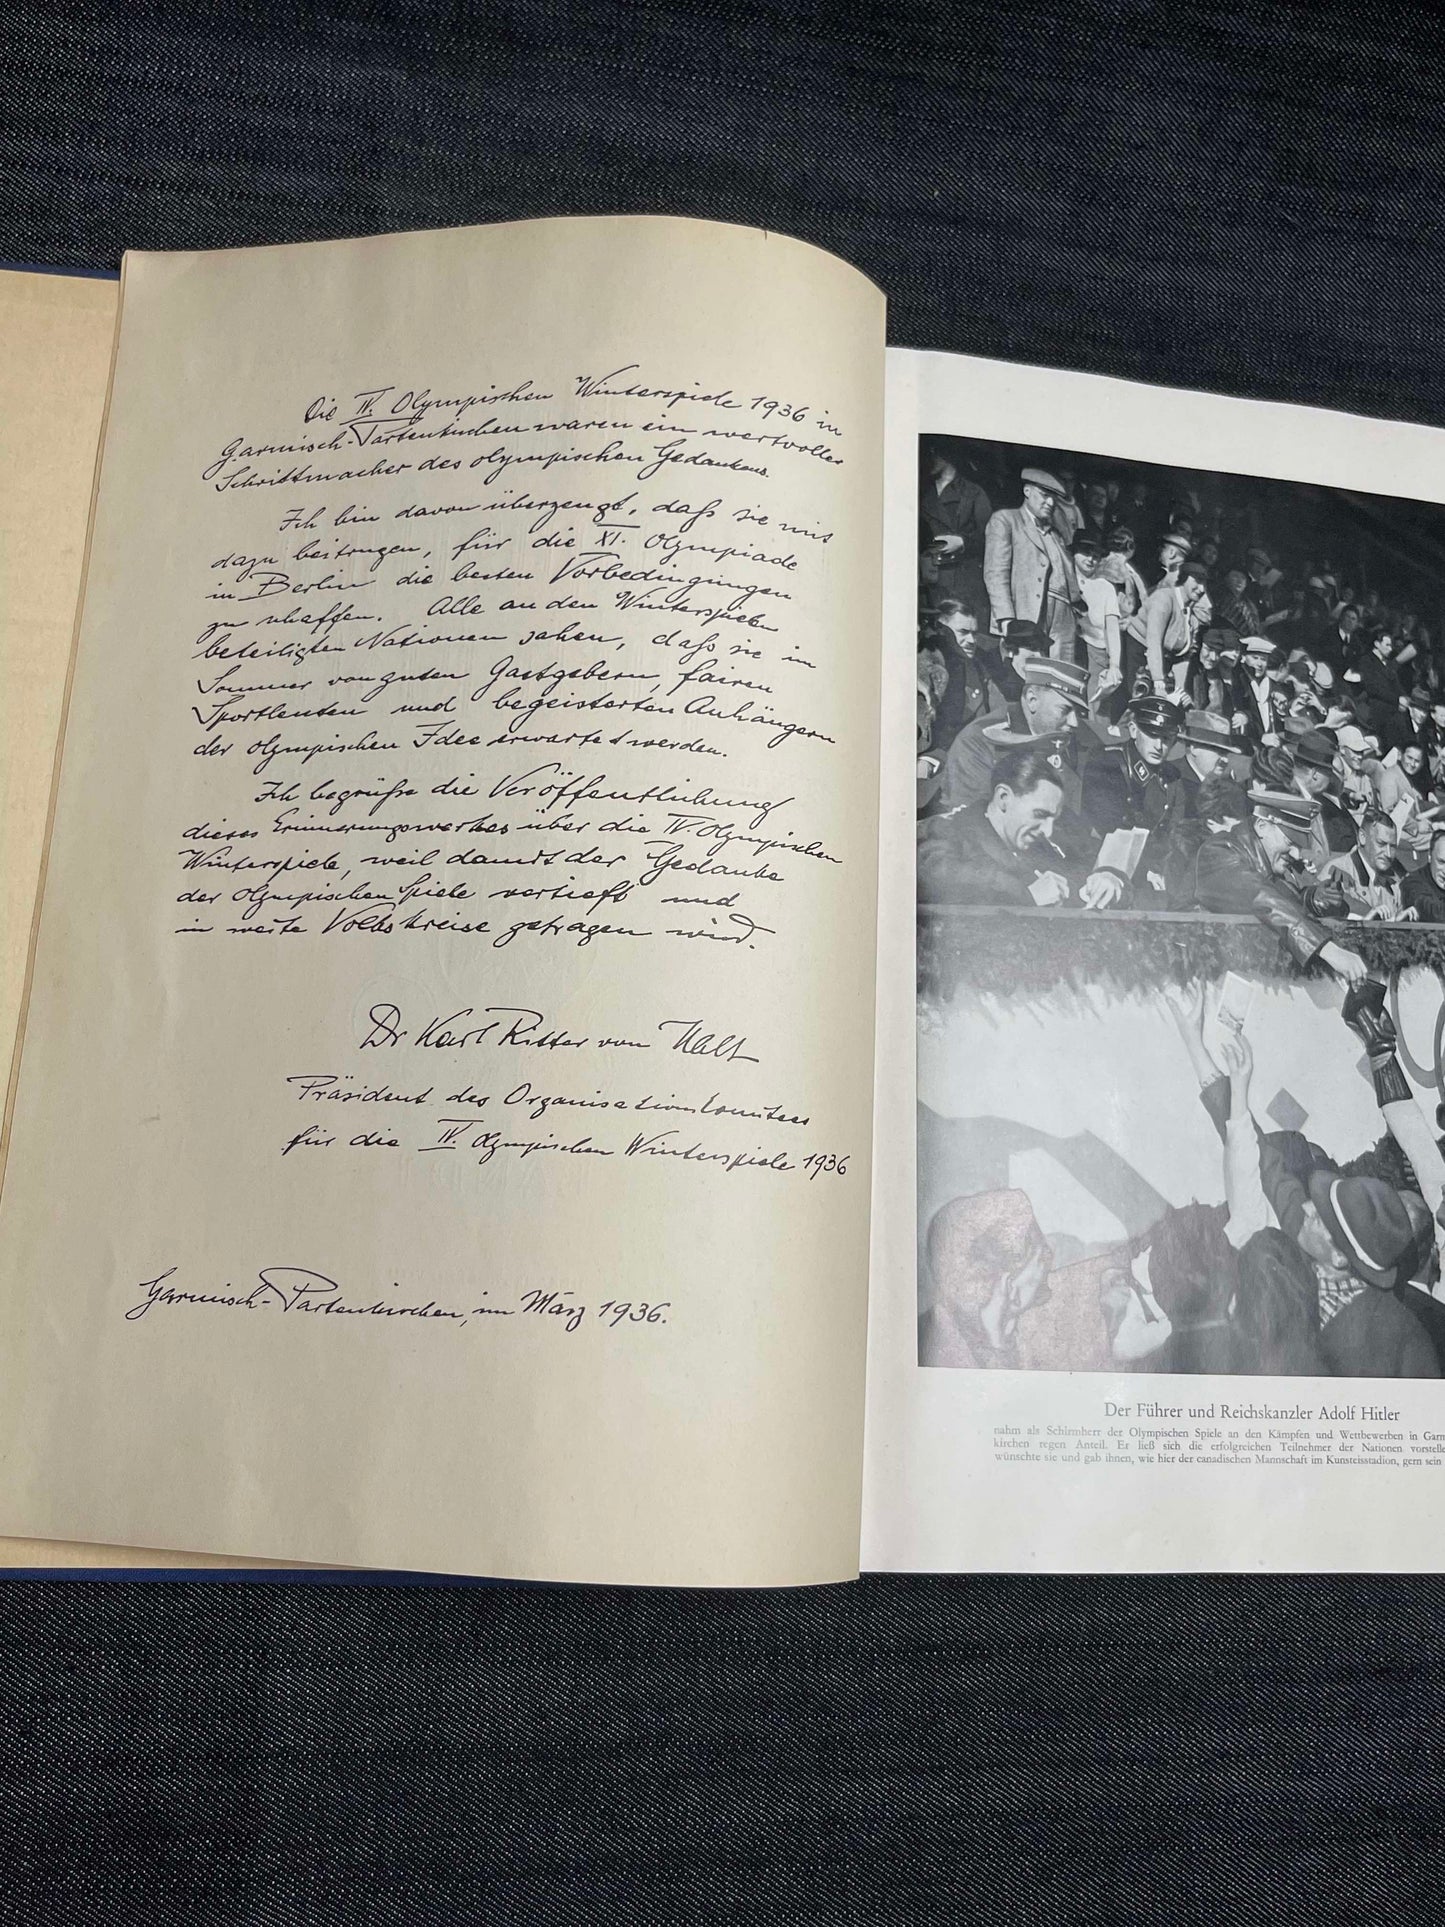 Die IV. Olympischen Winterspiele 1936 in
Garmisch-Partenkirchen waren ein wertvoller
Schrittmacher des olympischen Gedankens.
Ich bin davon überzeugt, daß sie mit
dazu beitrugen, für die XI. Olympiade
in Berlin die besten Vorbedingungen
zu schaffen. Alle an den Winterspielen
beteiligten Nationen sahen, daß sie im
Sommer von guten Gastgebern, fairen
Sportleuten und begeisterten Anhängern
der olympischen Idee erwartet werden.
Ich begrüße die Veröffentlichung
dieses Erinnerungswerkes über die IV. Olympischen
Winterspiele, weil damit der Gedanke
der olympischen Spiele vertieft und
in weite Volkskreise getragen wird.
Dr Karl Ritter von Halt
Präsident des Organisationskomitees
für die IV. Olympischen Winterspiele 1936
Garmisch-Partenkirchen, im März 1936.
Der Führer und Reichskanzler Adolf Hitler
nahm als Schirmherr der Olympischen Spiele an den Kämpfen und Wettbewerben in Garm
kirchen regen Anteil. Er ließ sich die erfolgreichen Teilnehmer der Nationen vorstelle
wünschte sie und gab ihnen, wie hier der canadischen Mannschaft im Kunsteisstadion, gern sein